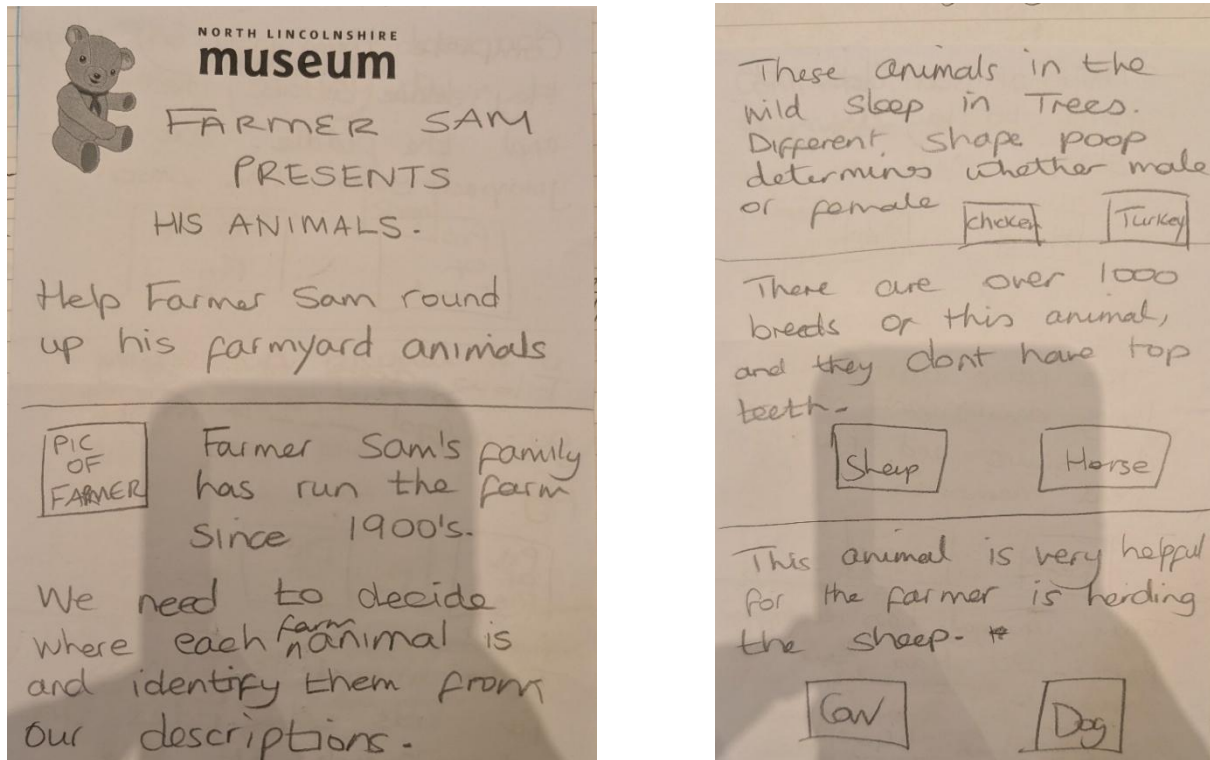 NORTH LINCOLNSHIRE
museum
FARMER SAM
PRESENTS
HIS ANIMALS.
Help Farmer Sam round
up his farmyard animals
PIC
OF
FARMER
Farmer Sam's family
has run the farm
since 1900's.
We need to decide
where each farm animal is
and identify them from
our descriptions.
These animals in the
wild sleep in Trees.
Different shape poop
determins whether male
or female
chicken
Turkey
There are over 1000
breeds of this animal,
and they dont have top
teeth.
Sheep
Horse
This animal is very helpful
for the farmer is herding
the sheep.
Cow
Dog